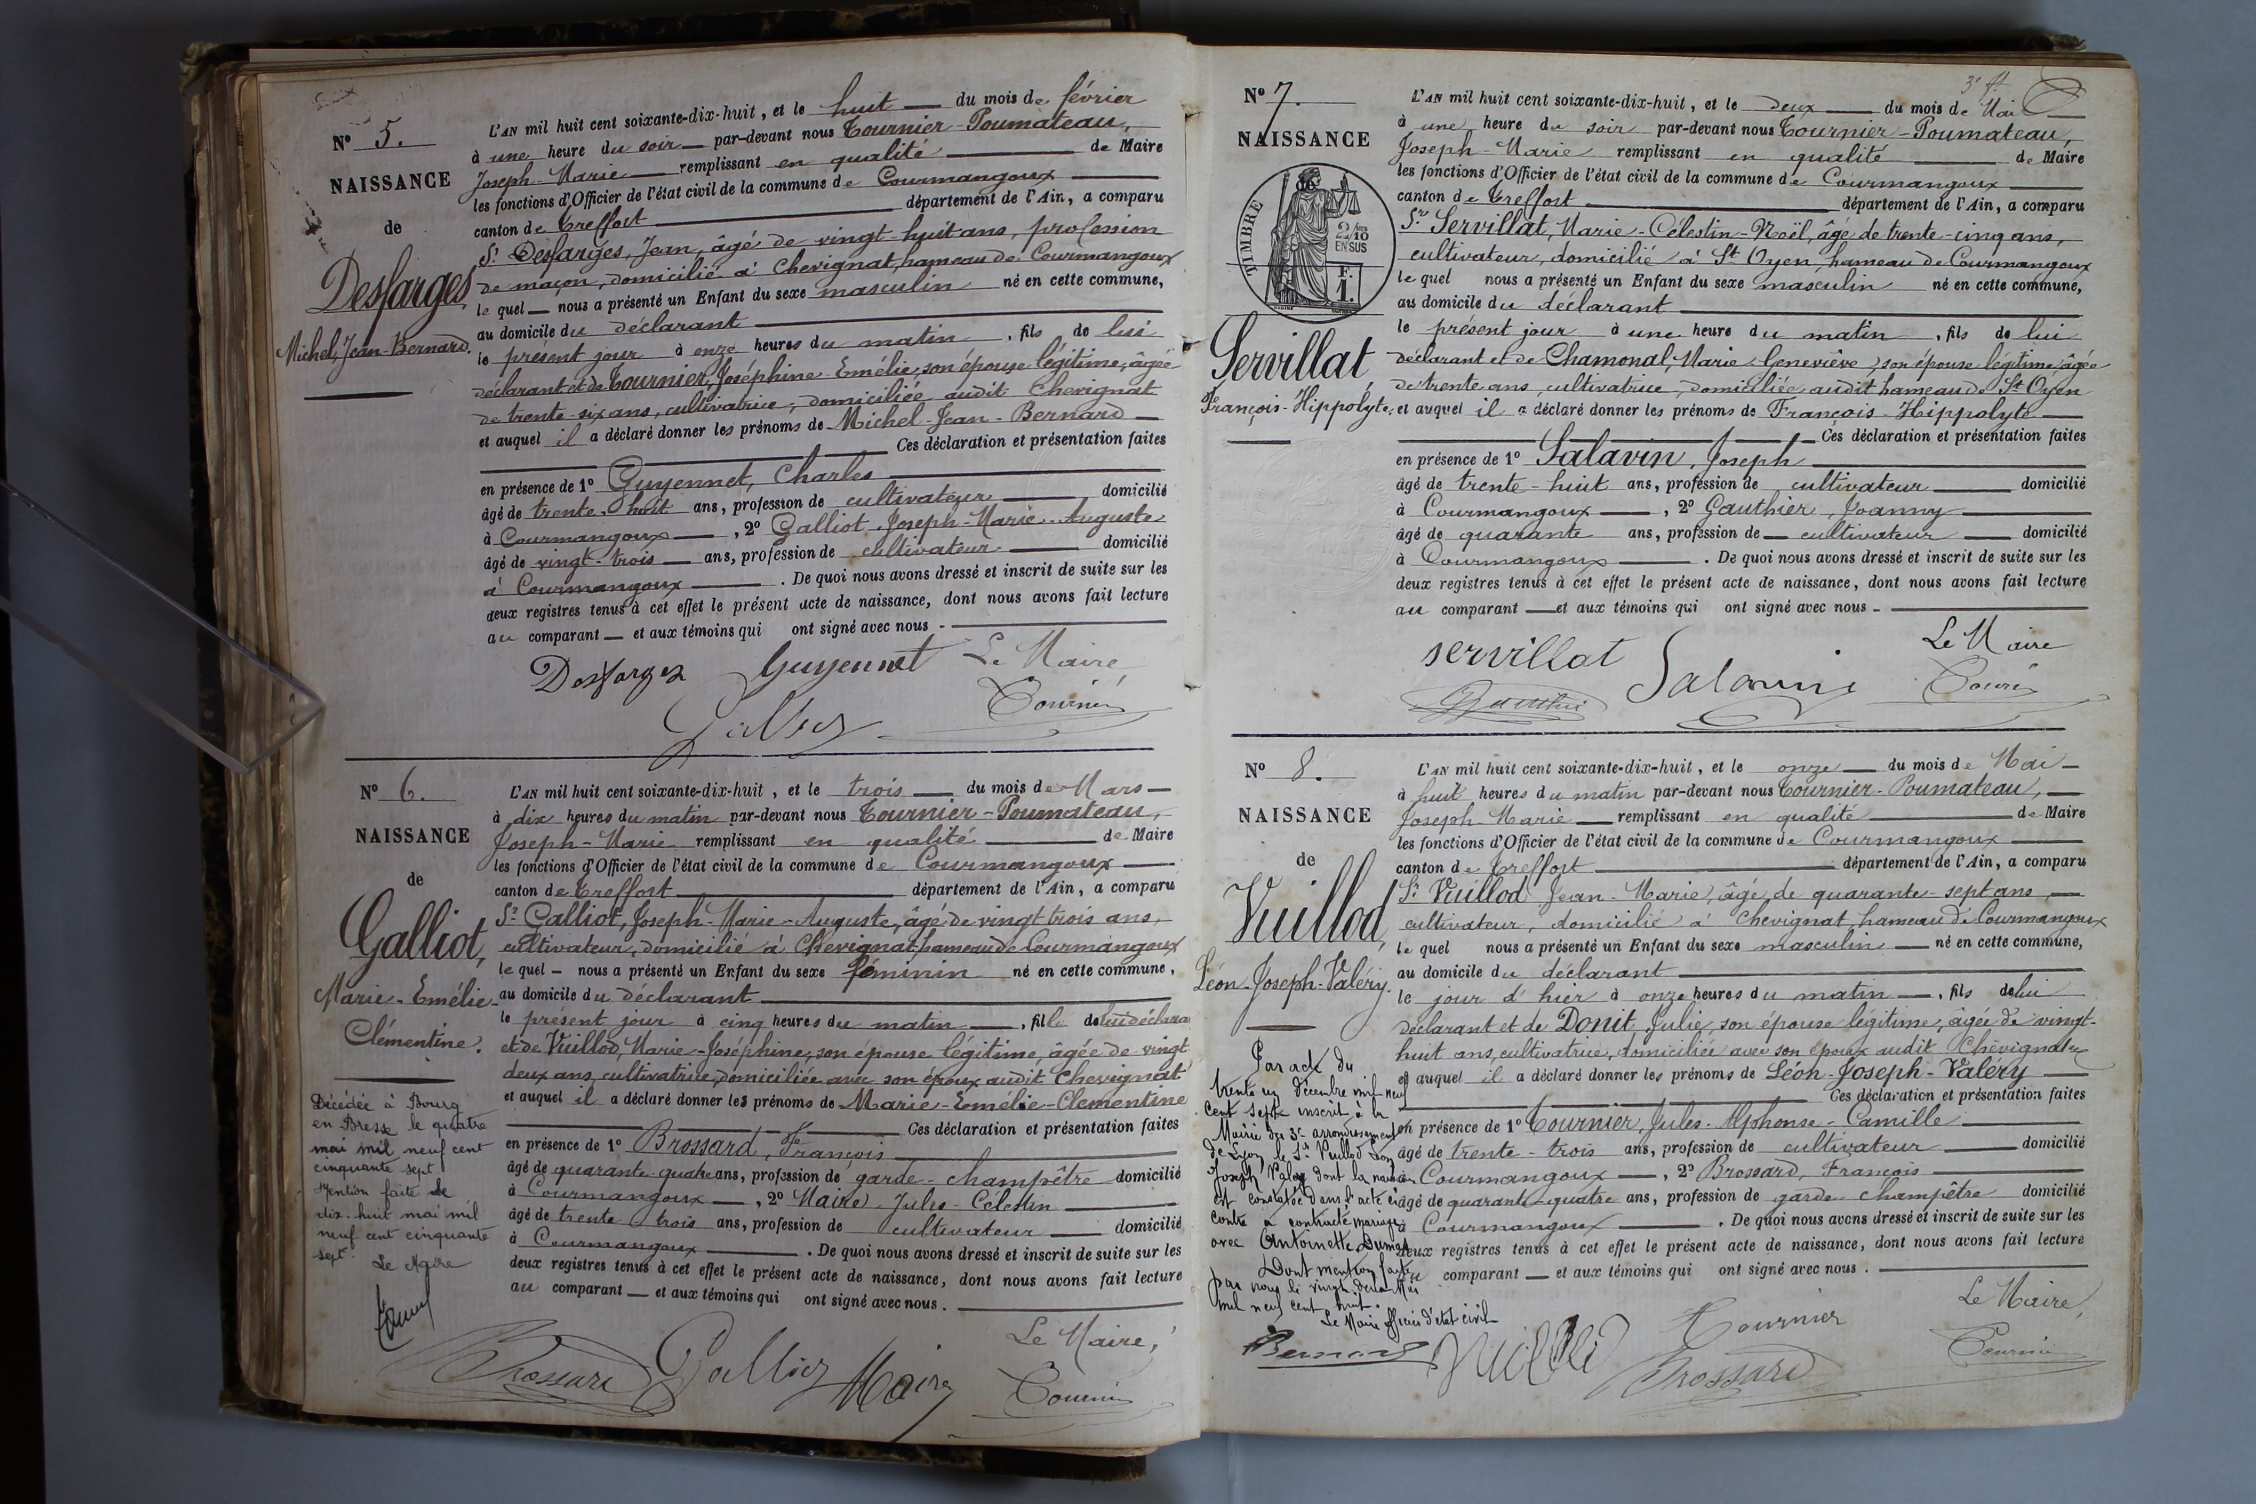 N° 5.
NAISSANCE
de
Desfarges,
Michel, Jean-Bernard.
L'AN mil huit cent soixante-dix-huit, et le huit du mois de février
à une heure du soir par-devant nous Tournier-Poumateau,
Joseph-Marie remplissant en qualité de Maire
les fonctions d'Officier de l'état civil de la commune de Courmangoux
canton de Treffort département de l'Ain, a comparu
Sr Desfarges, Jean, âgé de vingt-huit ans, profession
de maçon, domicilié à Chevignat, hameau de Courmangoux
le quel nous a présenté un Enfant du sexe masculin né en cette commune,
au domicile du déclarant
le présent jour à onze heures du matin, fils de lui
déclarant et de Tournier, Joséphine Emélie, son épouse légitime, âgée
de trente-six ans, cultivatrice, domiciliée audit Chevignat
et auquel il a déclaré donner les prénoms de Michel-Jean-Bernard
Ces déclaration et présentation faites
en présence de 1° Guyennet, Charles
âgé de trente-huit ans, profession de cultivateur domicilié
à Courmangoux, 2° Galliot, Joseph-Marie-Auguste
âgé de vingt-trois ans, profession de cultivateur domicilié
à Courmangoux. De quoi nous avons dressé et inscrit de suite sur les
deux registres tenus à cet effet le présent acte de naissance, dont nous avons fait lecture
au comparant et aux témoins qui ont signé avec nous.
Desfarges Guyennet Le Maire,
Galliot Tournier
N° 6.
NAISSANCE
de
Galliot,
Marie-Emélie-
Clémentine.
Décédée à Bourg
en Bresse le quatre
mai mil neuf cent
cinquante sept
Mention faite le
dix-huit mai mil
neuf cent cinquante
sept.
Le Maire
L'AN mil huit cent soixante-dix-huit, et le trois du mois de Mars
à dix heures du matin par-devant nous Tournier-Poumateau,
Joseph-Marie remplissant en qualité de Maire
les fonctions d'Officier de l'état civil de la commune de Courmangoux
canton de Treffort département de l'Ain, a comparu
Sr Galliot, Joseph-Marie-Auguste, âgé de vingt-trois ans,
cultivateur, domicilié à Chevignat hameau de Courmangoux
le quel nous a présenté un Enfant du sexe féminin né en cette commune,
au domicile du déclarant
le présent jour à cinq heures du matin, fille de lui déclarant
et de Vuillod, Marie-Joséphine, son épouse légitime, âgée de vingt
deux ans, cultivatrice, domiciliée avec son époux audit Chevignat
et auquel il a déclaré donner les prénoms de Marie-Emélie-Clementine
Ces déclaration et présentation faites
en présence de 1° Brossard, François
âgé de quarante-quatre ans, profession de garde-champêtre domicilié
à Courmangoux, 2° Maire, Jules-Célestin
âgé de trente-trois ans, profession de cultivateur domicilié
à Courmangoux. De quoi nous avons dressé et inscrit de suite sur les
deux registres tenus à cet effet le présent acte de naissance, dont nous avons fait lecture
au comparant et aux témoins qui ont signé avec nous.
Le Maire,
Brossard Galliot Maire Tournier
3e ft
N° 7.
NAISSANCE
TIMBRE
2/10
EN SUS
F.
1.
Servillat
François-Hippolyte.
L'AN mil huit cent soixante-dix-huit, et le deux du mois de Mai
à une heure du soir par-devant nous Tournier-Poumateau,
Joseph-Marie remplissant en qualité de Maire
les fonctions d'Officier de l'état civil de la commune de Courmangoux
canton de Treffort département de l'Ain, a comparu
Sr Servillat, Marie-Célestin-Noël, âgé de trente-cinq ans,
cultivateur, domicilié à St Oyen, hameau de Courmangoux
le quel nous a présenté un Enfant du sexe masculin né en cette commune,
au domicile du déclarant
le présent jour à une heure du matin, fils de lui
déclarant et de Chamonal, Marie Geneviève, son épouse légitime, âgée
de trente ans, cultivatrice, domiciliée audit hameau de St Oyen
et auquel il a déclaré donner les prénoms de François-Hippolyte
Ces déclaration et présentation faites
en présence de 1° Salavin, Joseph
âgé de trente-huit ans, profession de cultivateur domicilié
à Courmangoux, 2° Gauthier, Joanny
âgé de quarante ans, profession de cultivateur domicilié
à Courmangoux. De quoi nous avons dressé et inscrit de suite sur les
deux registres tenus à cet effet le présent acte de naissance, dont nous avons fait lecture
au comparant et aux témoins qui ont signé avec nous.
servillat Salavin Le Maire
Gauthier Tournier
N° 8.
NAISSANCE
de
Vuillod,
Léon-Joseph-Valéry.
Par acte du
trente un décembre mil neuf
cent sept inscrit à la
Mairie du 3e arrondissement
de Lyon, le Sr Vuillod Léon
Joseph Valéry dont la naissance
est constatée dans l'acte ci
contre a contracté mariage
avec Antoinette Dumas
Dont mention faite
par nous le vingt deux Mai
mil neuf cent huit.
Le Maire officier d'état civil
Bernard
L'AN mil huit cent soixante-dix-huit, et le onze du mois de Mai
à huit heures du matin par-devant nous Tournier-Poumateau,
Joseph Marie remplissant en qualité de Maire
les fonctions d'Officier de l'état civil de la commune de Courmangoux
canton de Treffort département de l'Ain, a comparu
Sr Vuillod Jean-Marie, âgé de quarante-sept ans,
cultivateur, domicilié à Chevignat, hameau de Courmangoux
le quel nous a présenté un Enfant du sexe masculin né en cette commune,
au domicile du déclarant
le jour d'hier à onze heures du matin, fils de lui
déclarant et de Donit, Julie, son épouse légitime, âgée de vingt-
huit ans, cultivatrice, domiciliée avec son époux audit Chevignat
et auquel il a déclaré donner les prénoms de Léon-Joseph-Valéry
Ces déclaration et présentation faites
en présence de 1° Tournier, Jules-Alphonse-Camille
âgé de trente-trois ans, profession de cultivateur domicilié
à Courmangoux, 2° Brossard, François
âgé de quarante-quatre ans, profession de garde champêtre domicilié
à Courmangoux. De quoi nous avons dressé et inscrit de suite sur les
deux registres tenus à cet effet le présent acte de naissance, dont nous avons fait lecture
au comparant et aux témoins qui ont signé avec nous.
Le Maire,
Vuillod Tournier
Brossard Tournier